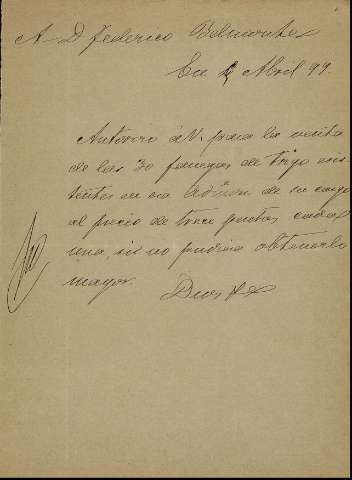 A D Federico Belmonte
En 2 Abril 99.
Autorizo á V. para la venta
de las 30 fanegas de trigo exis
tentes en esa Admon de su cargo
al precio de trece pesetas cada
una, si no pudiera obtenerlo
mayor.
Dios &